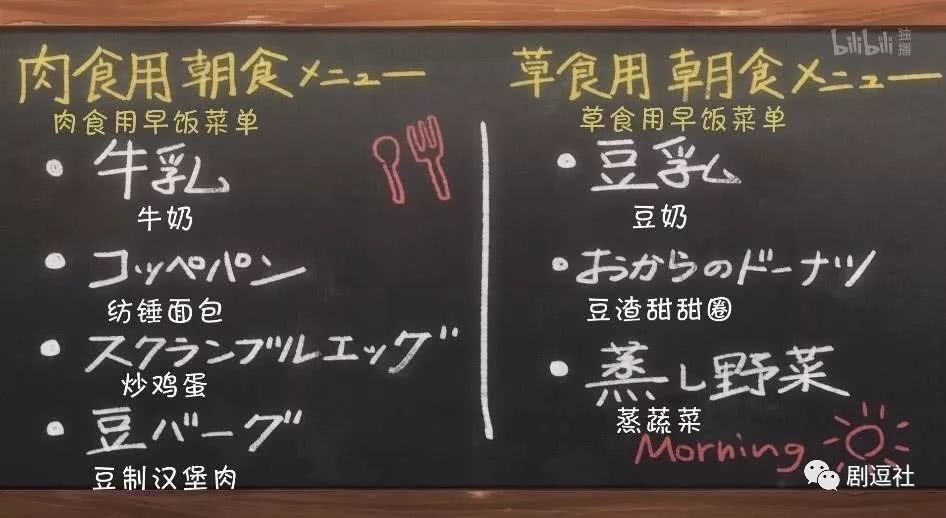 肉食用朝食メニュー
肉食用早饭菜单
• 牛乳
牛奶
• コッペパン
纺锤面包
• スクランブルエッグ
炒鸡蛋
• 豆バーグ
豆制汉堡肉
bilibili 独播
草食用朝食メニュー
草食用早饭菜单
• 豆乳
豆奶
• おからのドーナツ
豆渣甜甜圈
• 蒸し野菜
蒸蔬菜
Morning
剧逗社